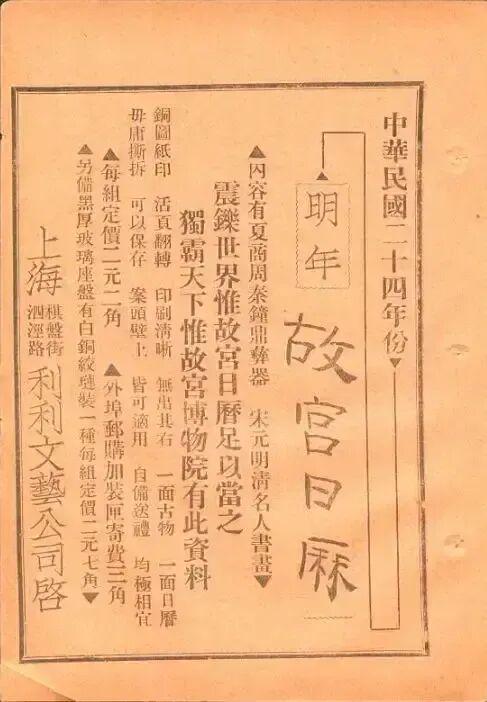 中華民國二十四年份▼
▲明年
故宮日厤
▲內容有夏商周秦鐘鼎彝器 宋元明清名人書畫▼
震鑠世界惟故宮日曆足以當之
獨霸天下惟故宮博物院有此資料
銅圖紙印 活頁翻轉 印刷清晰 無出其右 一面古物 一面日曆
毋庸撕拆 可以保存 案頭壁上 皆可適用 自備送禮 均極相宜
▲每組定價二元二角 ▲外埠郵購加裝匣寄費三角
▲另備黑厚玻璃座盤有白銅絞璉裝一種每組定價二元七角▼
上海棋盤街泗涇路利利文藝公司啓